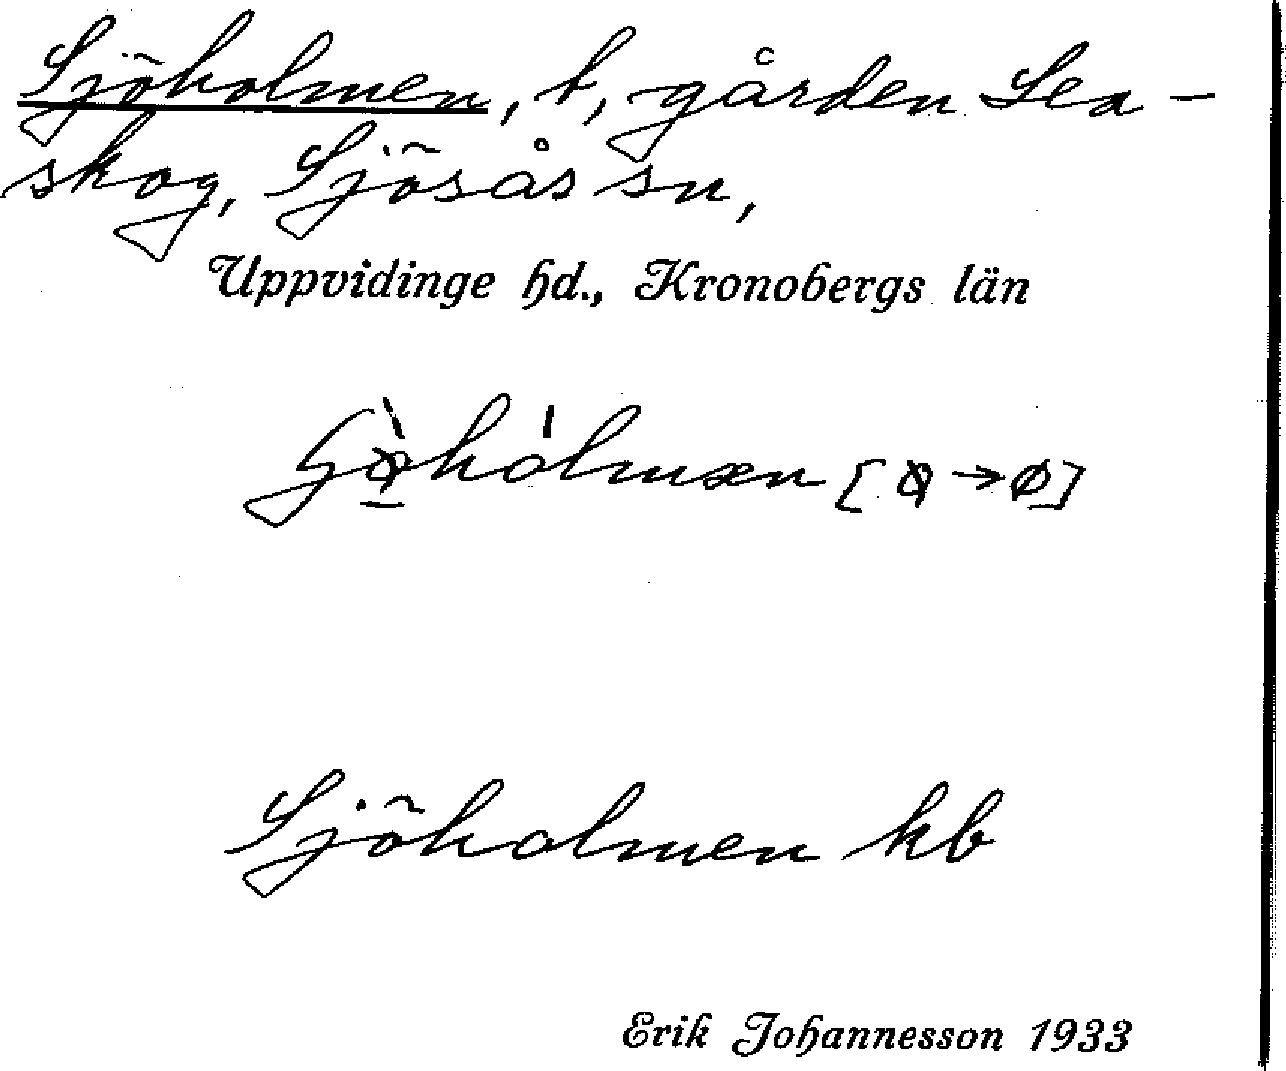 Sjöholmen, t, gården Lea-
skog, Sjösås sn,
Uppvidinge hd., Kronobergs län
[ø → ø]
Sjöholmen kb
Erik Johannesson 1933